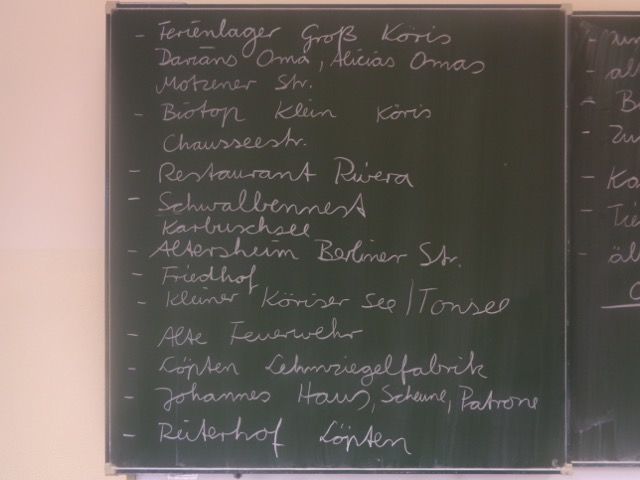 - Ferienlager Groß Köris
Darians Oma, Alicias Omas
Motzener Str.
- Biotop Klein Köris
Chausseestr.
- Restaurant Rivera
- Schwalbennest
Karbuschsee
- Altersheim Berliner Str.
- Friedhof
- Kleiner Köriser See/Tonsee
- Alte Feuerwehr
- Löpten Lehmziegelfabrik
- Johannes Haus, Scheune, Patrone
- Reiterhof Löpten